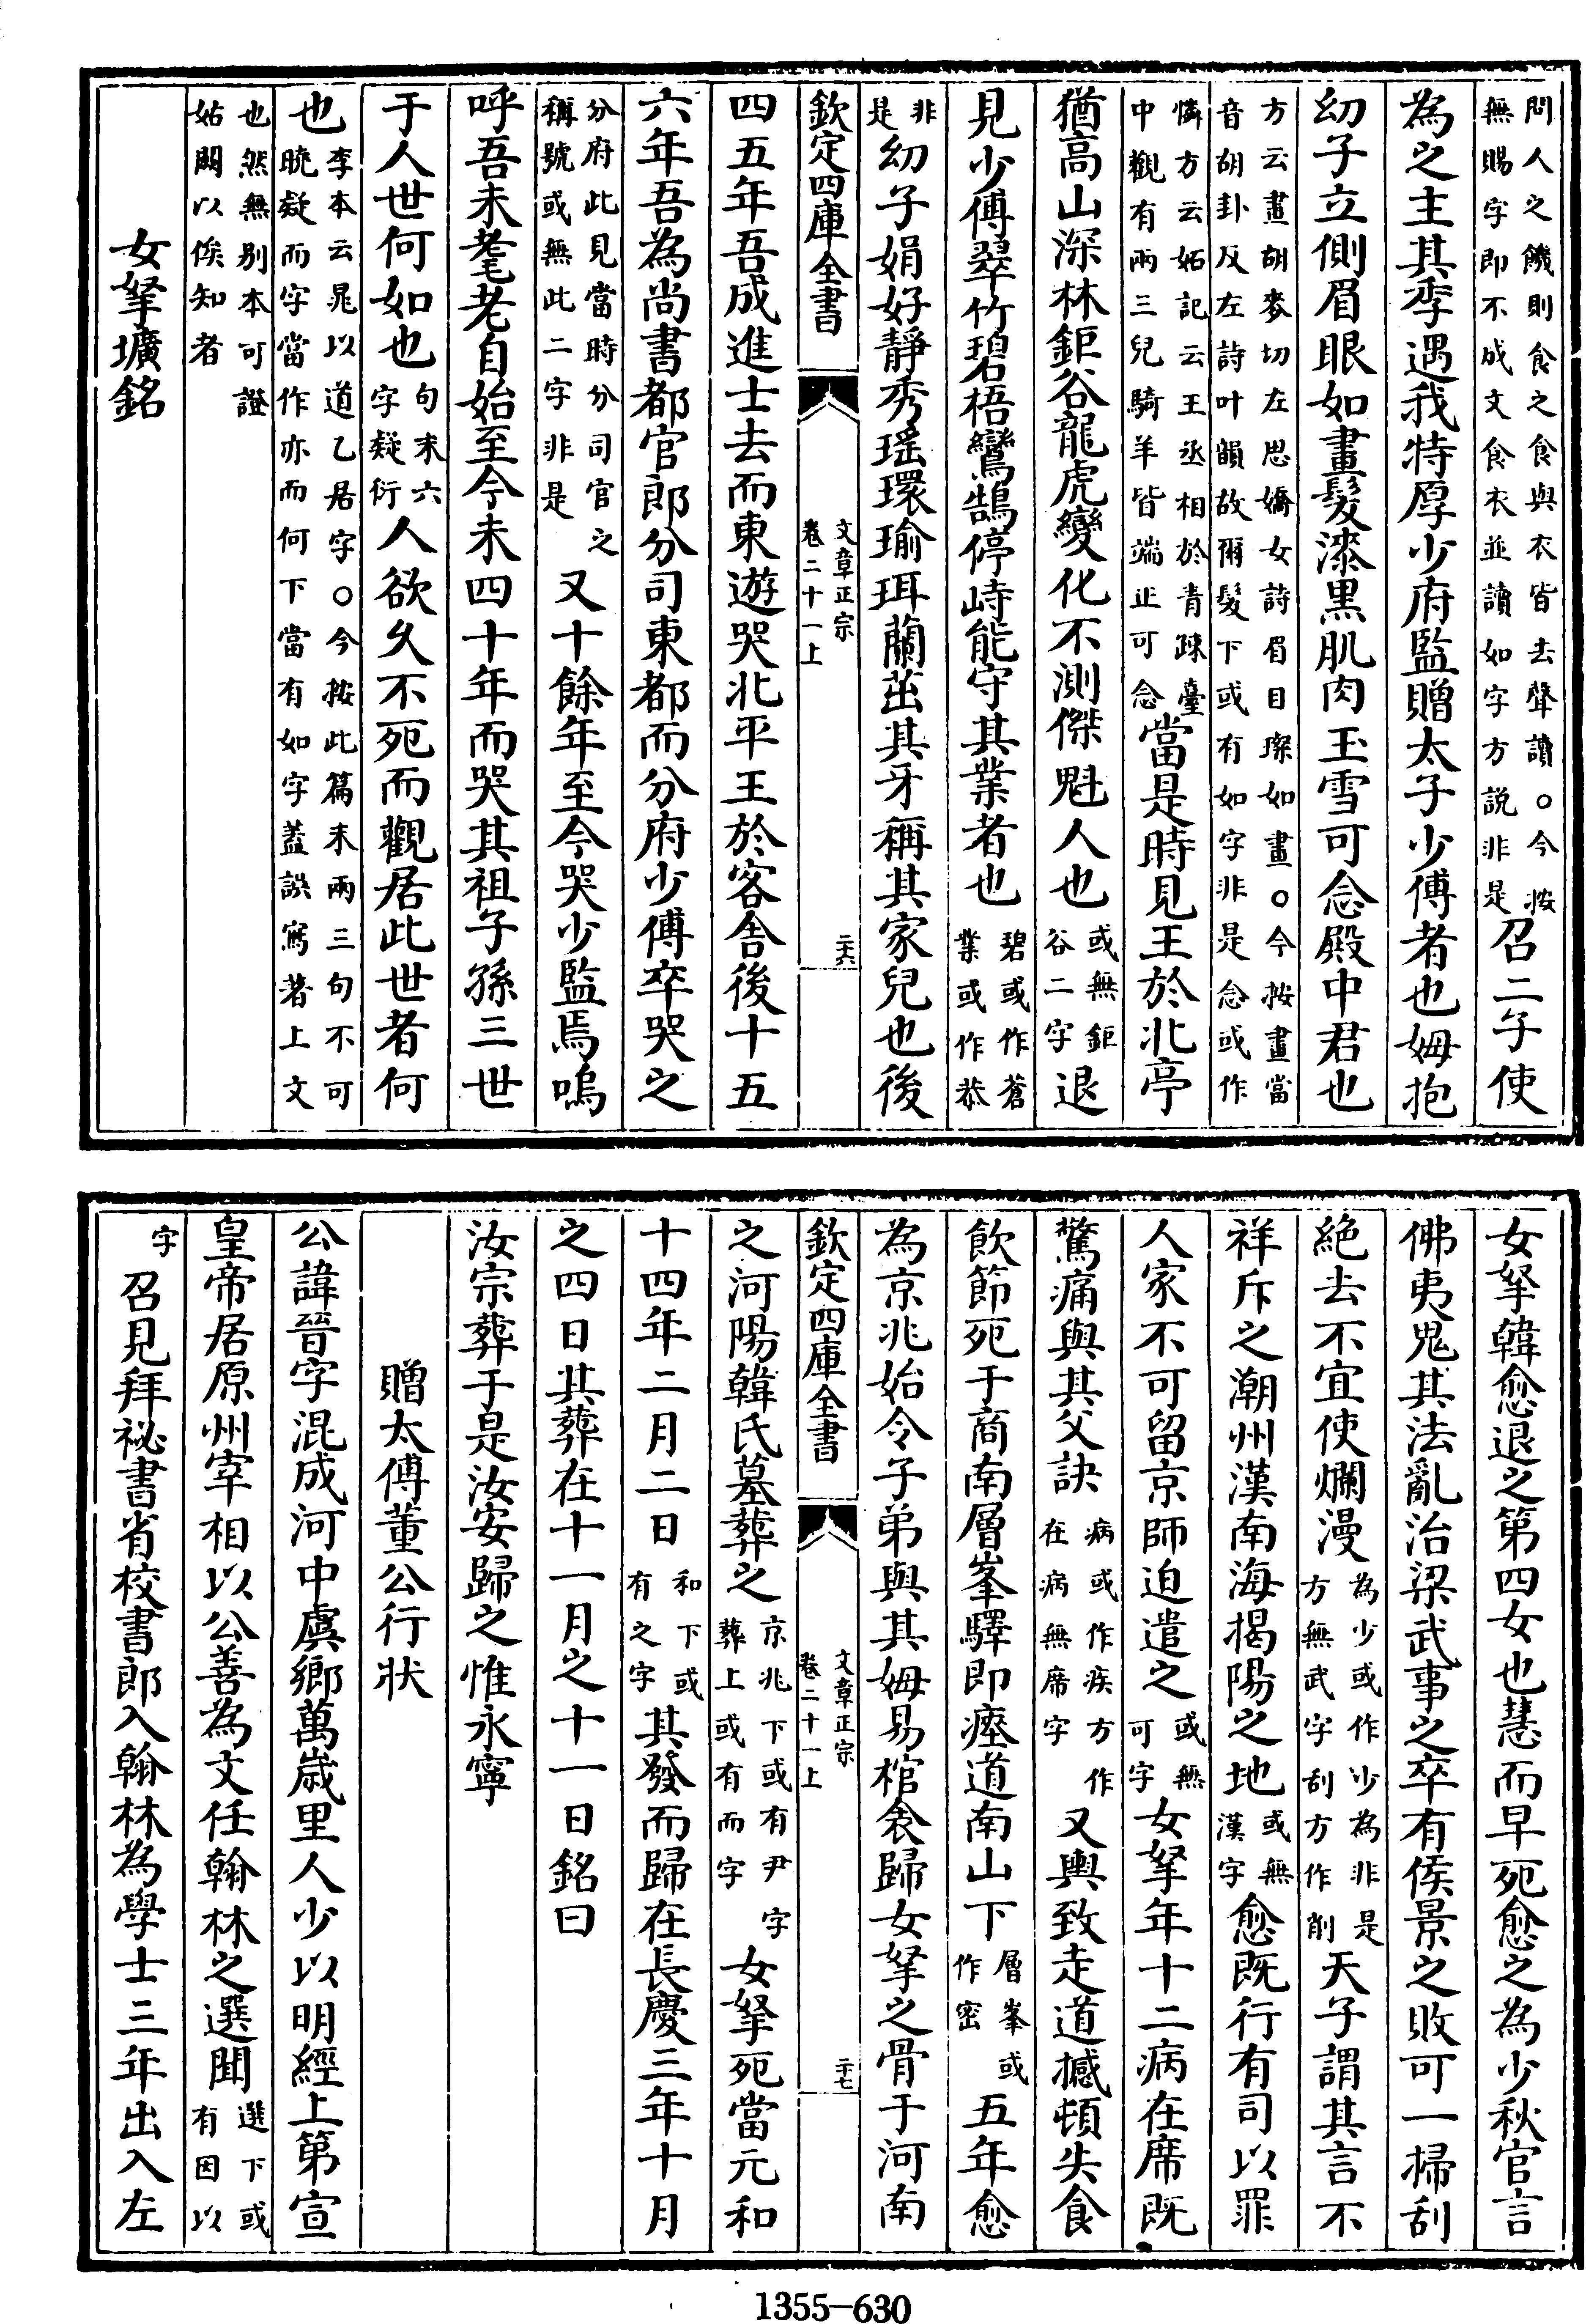 問人之饑則食之食與衣皆去聲讀○今按
無賜字即不成文食衣並讀如字方説非是召二子使
為之主其季遇我特厚少府監贈太子少傅者也姆抱
幼子立側眉眼如畫髮漆黒肌肉玉雪可念殿中君也
方云畫胡麥切左思嬌女詩眉目璨如畫○今按畫當
音胡卦反左詩叶韻故爾髮下或有如字非是念或作
憐方云妬記云王丞相於青疎臺
中觀有兩三兒騎羊皆端正可念當是時見王於北亭
猶高山深林鉅谷龍虎變化不測傑魁人也或無鉅
谷二字退
見少傅翠竹碧梧鸞鵠停峙能守其業者也碧或作蒼
業或作恭
非
是幼子娟好靜秀瑶環瑜珥蘭茁其牙稱其家兒也後
欽定四庫全書
文章正宗
卷二十一上
二十六
四五年吾成進士去而東遊哭北平王於客舍後十五
六年吾為尚書都官郎分司東都而分府少傅卒哭之
分府此見當時分司官之
稱號或無此二字非是又十餘年至今哭少監焉嗚
呼吾未耄老自始至今未四十年而哭其祖子孫三世
于人世何如也句末六
字疑衍人欲久不死而觀居此世者何
也李本云晁以道乙居字○今按此篇末兩三句不可
曉疑而字當作亦而何下當有如字蓋誤寫著上文
也然無別本可證
姑闕以俟知者
女挐壙銘
女挐韓愈退之第四女也慧而早死愈之為少秋官言
佛夷鬼其法亂治梁武事之卒有侯景之敗可一掃刮
絶去不宜使爛漫為少或作少為非是
方無武字刮方作削天子謂其言不
祥斥之潮州漢南海揭陽之地或無
漢字愈既行有司以罪
人家不可留京師迫遣之或無
可字女挐年十二病在席既
驚痛與其父訣病或作疾方作
在病無席字又輿致走道撼頓失食
飲節死于商南層峯驛即瘞道南山下層峯或
作密五年愈
為京兆始令子弟與其姆易棺衾歸女挐之骨于河南
欽定四庫全書
文章正宗
卷二十一上
二十七
之河陽韓氏墓葬之京兆下或有尹字
葬上或有而字女挐死當元和
十四年二月二日和下或
有之字其發而歸在長慶三年十月
之四日其葬在十一月之十一日銘曰
汝宗葬于是汝安歸之惟永寧
贈太傅董公行狀
公諱晉字混成河中虞鄉萬歲里人少以明經上第宣
皇帝居原州宰相以公善為文任翰林之選聞選下或
有因以
字召見拜祕書省校書郎入翰林為學士三年出入左
1355—630